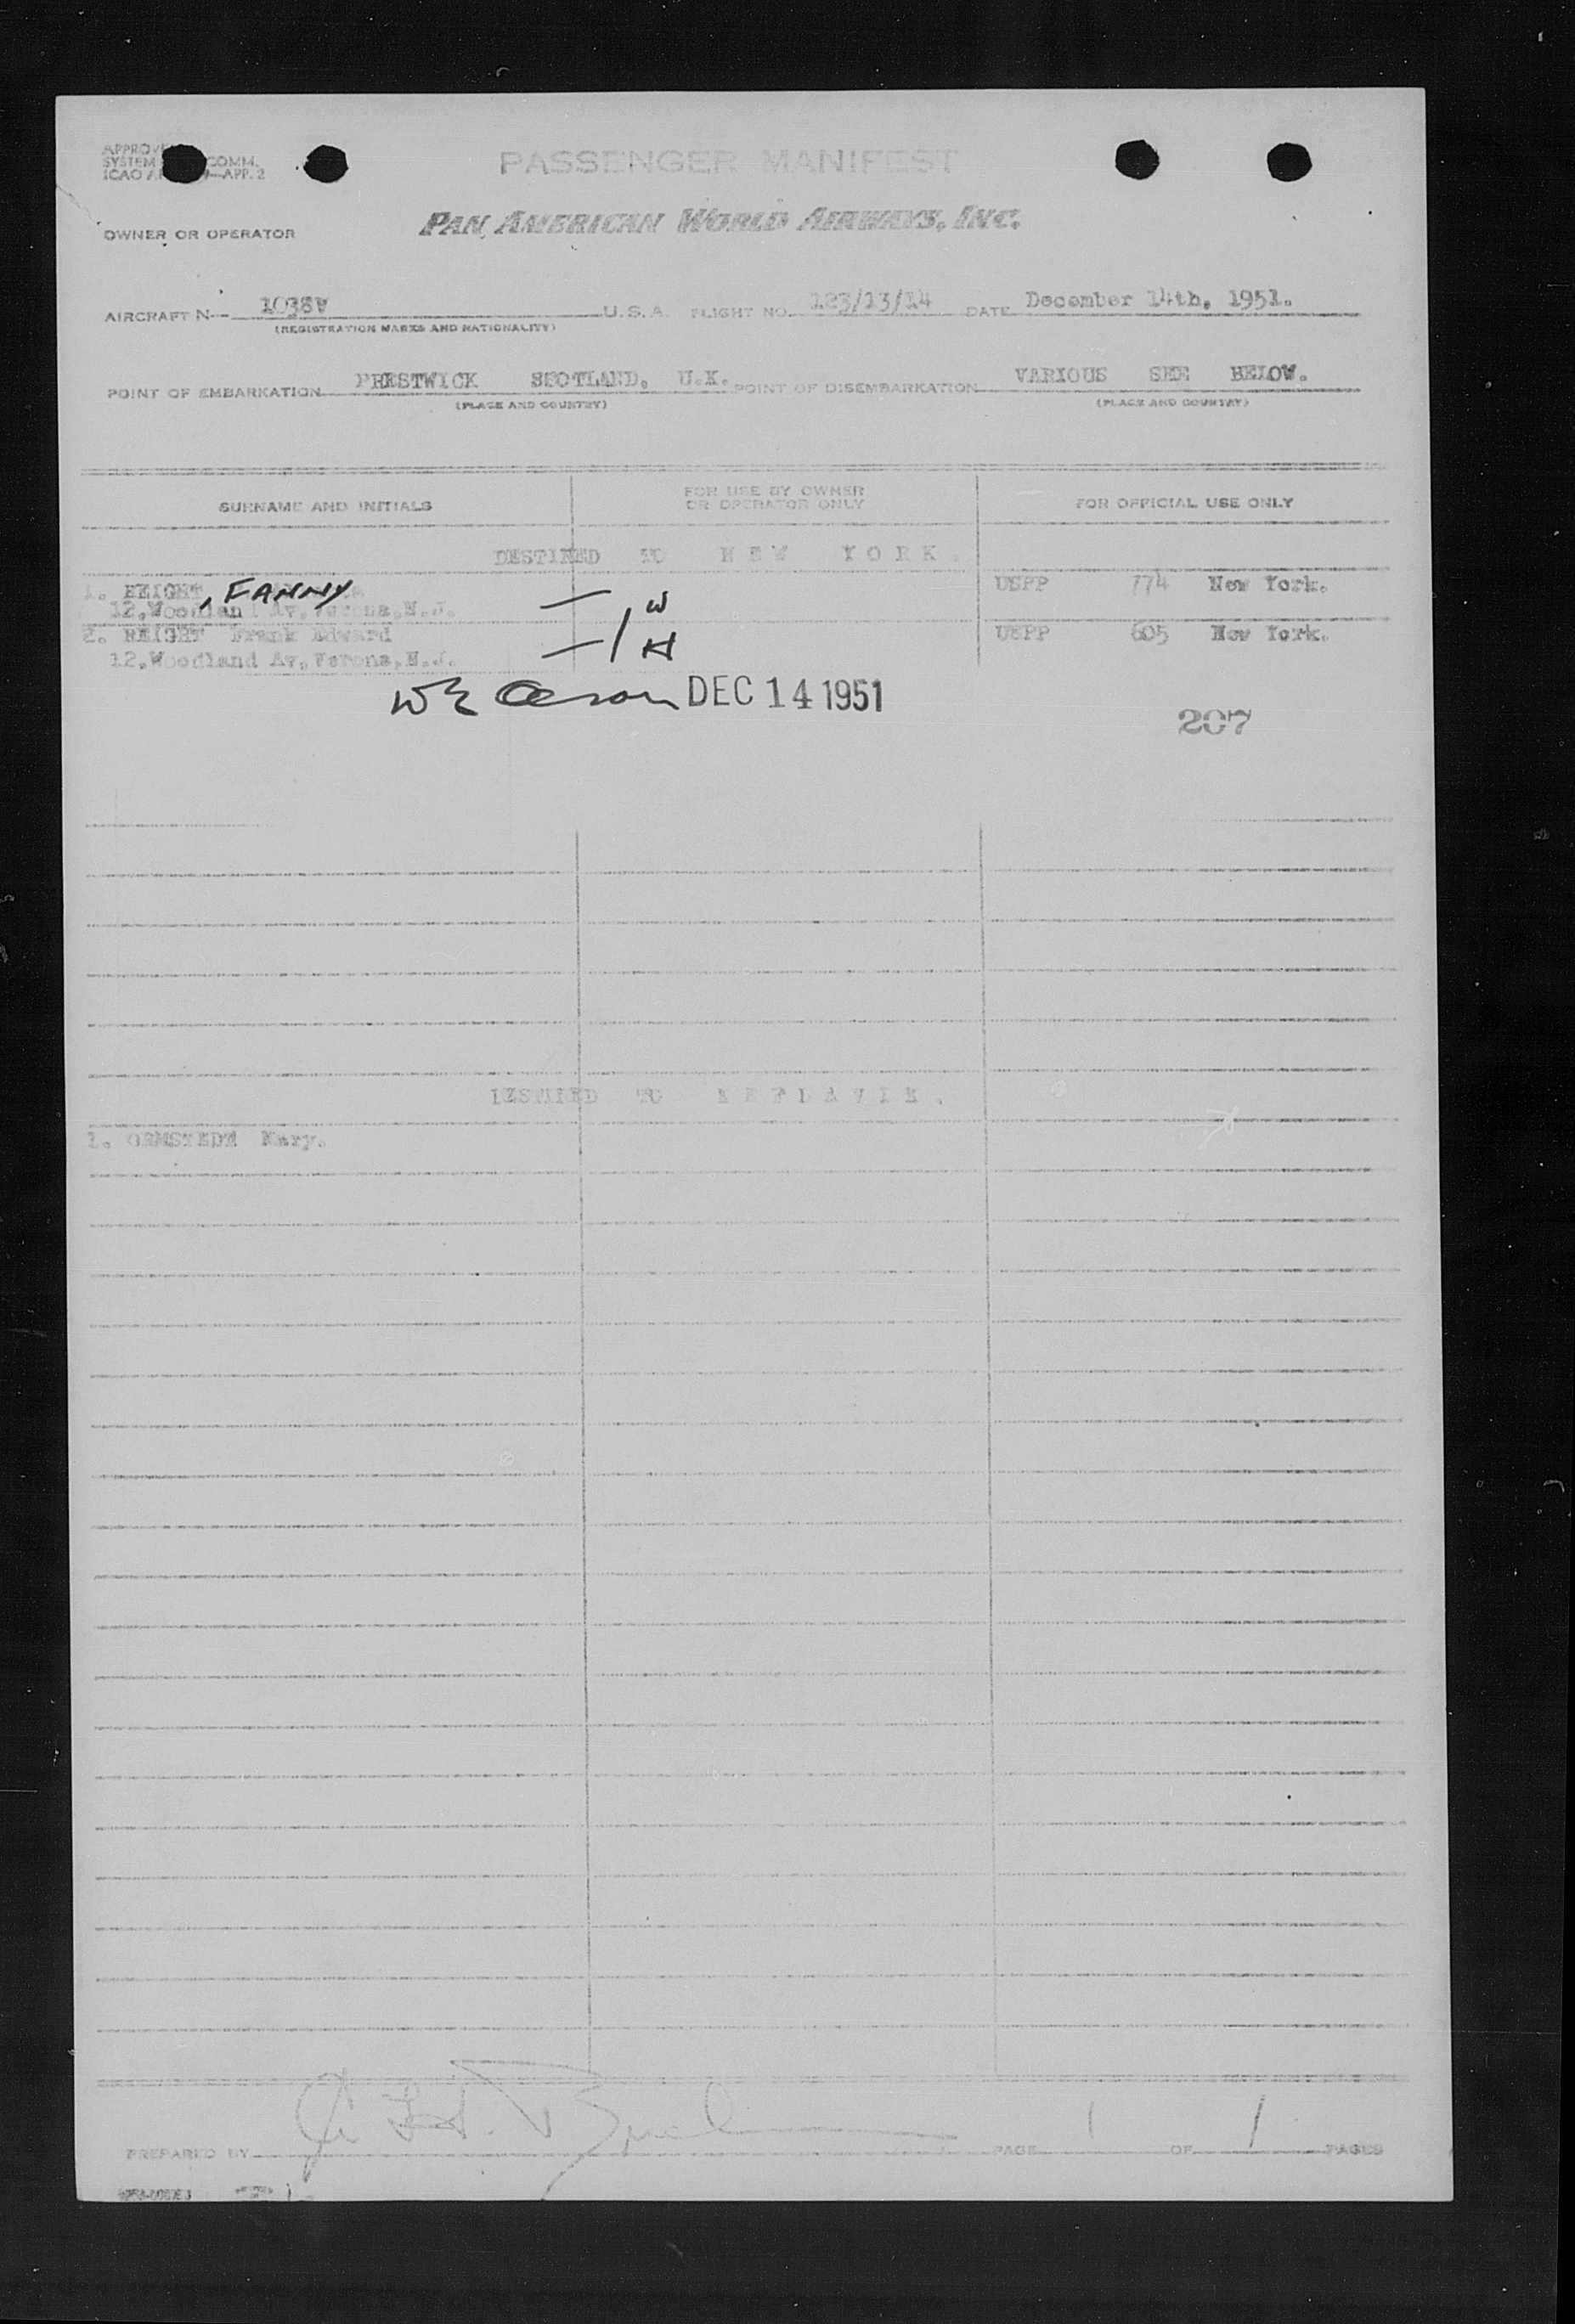 PASSENGER MANIFEST
SYSTEM COMM.
ICAO —APP. 2
OWNER OR OPERATOR
PAN AMERICAN WORLD AIRWAYS, INC.
AIRCRAFT N- 1038V U.S.A. FLIGHT NO. 123/13/14 DATE December 14th, 1951.
(REGISTRATION MARKS AND NATIONALITY)
POINT OF EMBARKATION PRESTWICK SCOTLAND. U.K. POINT OF DISEMBARKATION VARIOUS SEE BELOW.
(PLACE AND COUNTRY) (PLACE AND COUNTRY)
SURNAME AND INITIALS FOR USE BY OWNER OR OPERATOR ONLY FOR OFFICIAL USE ONLY
DESTINED TO NEW YORK.
1. HEIGHT, FANNY USPP 774 New York.
12, Woodland Av, Verona, N.J. W
2. HEIGHT Frank Edward USPP 605 New York.
12, Woodland Av, Verona, N.J. H
DEC 14 1951
207
DESTINED TO KEFLAVIK.
1. ORMSTEDT Mary.
PREPARED BY PAGE 1 OF 1 PAGES